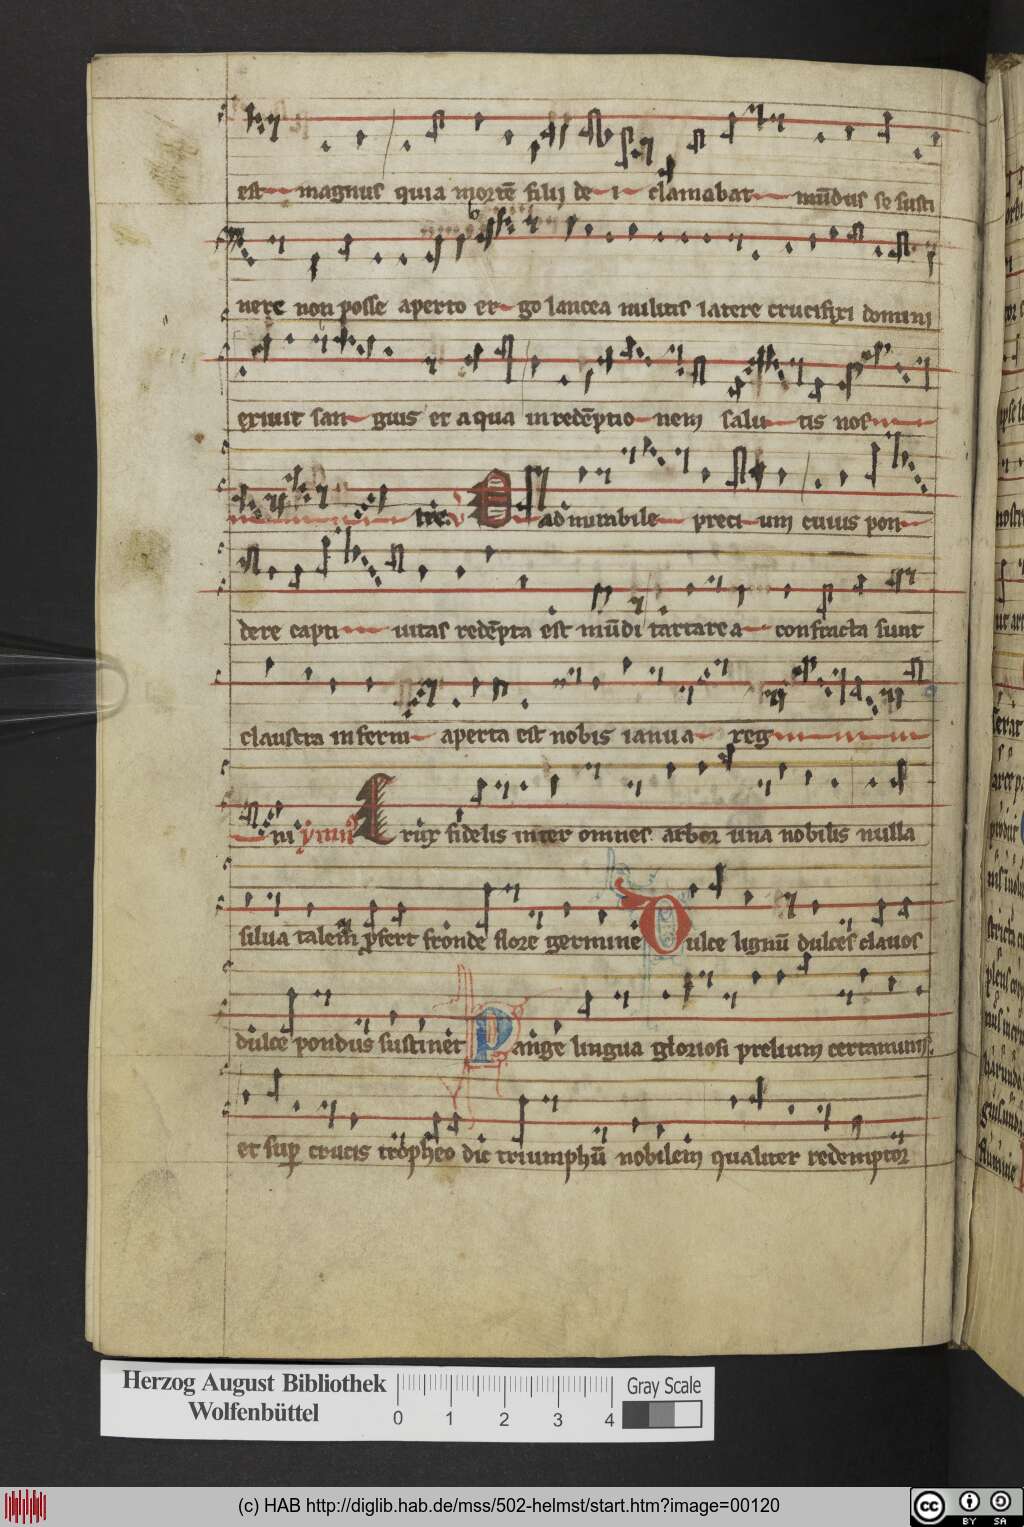 est magnus quia mortē filij de i clamabat mūdus se susti
nere non posse aperto er go lancea militis latere crucifixi domini
exiuit san guis et aqua in redēptio nem salu tis nos
tre. v O ad mirabile preci um cuius pon
dere capti uitas redēpta est mūdi tartarea confracta sunt
claustra inferni aperta est nobis ianua reg
ni ymnꝰ Crux fidelis inter omnes arbor una nobilis nulla
silua talem ꝓfert fronde flore germine Dulce lignū dulces clauos
dulce pondus sustinet Pange lingua gloriosi prelium certaminis.
et suꝑ crucis tropheo dic triumphū nobilem qualiter redemptor
Herzog August Bibliothek
Wolfenbüttel
0 1 2 3 4
Gray Scale
(c) HAB http://diglib.hab.de/mss/502-helmst/start.htm?image=00120
cc BY SA